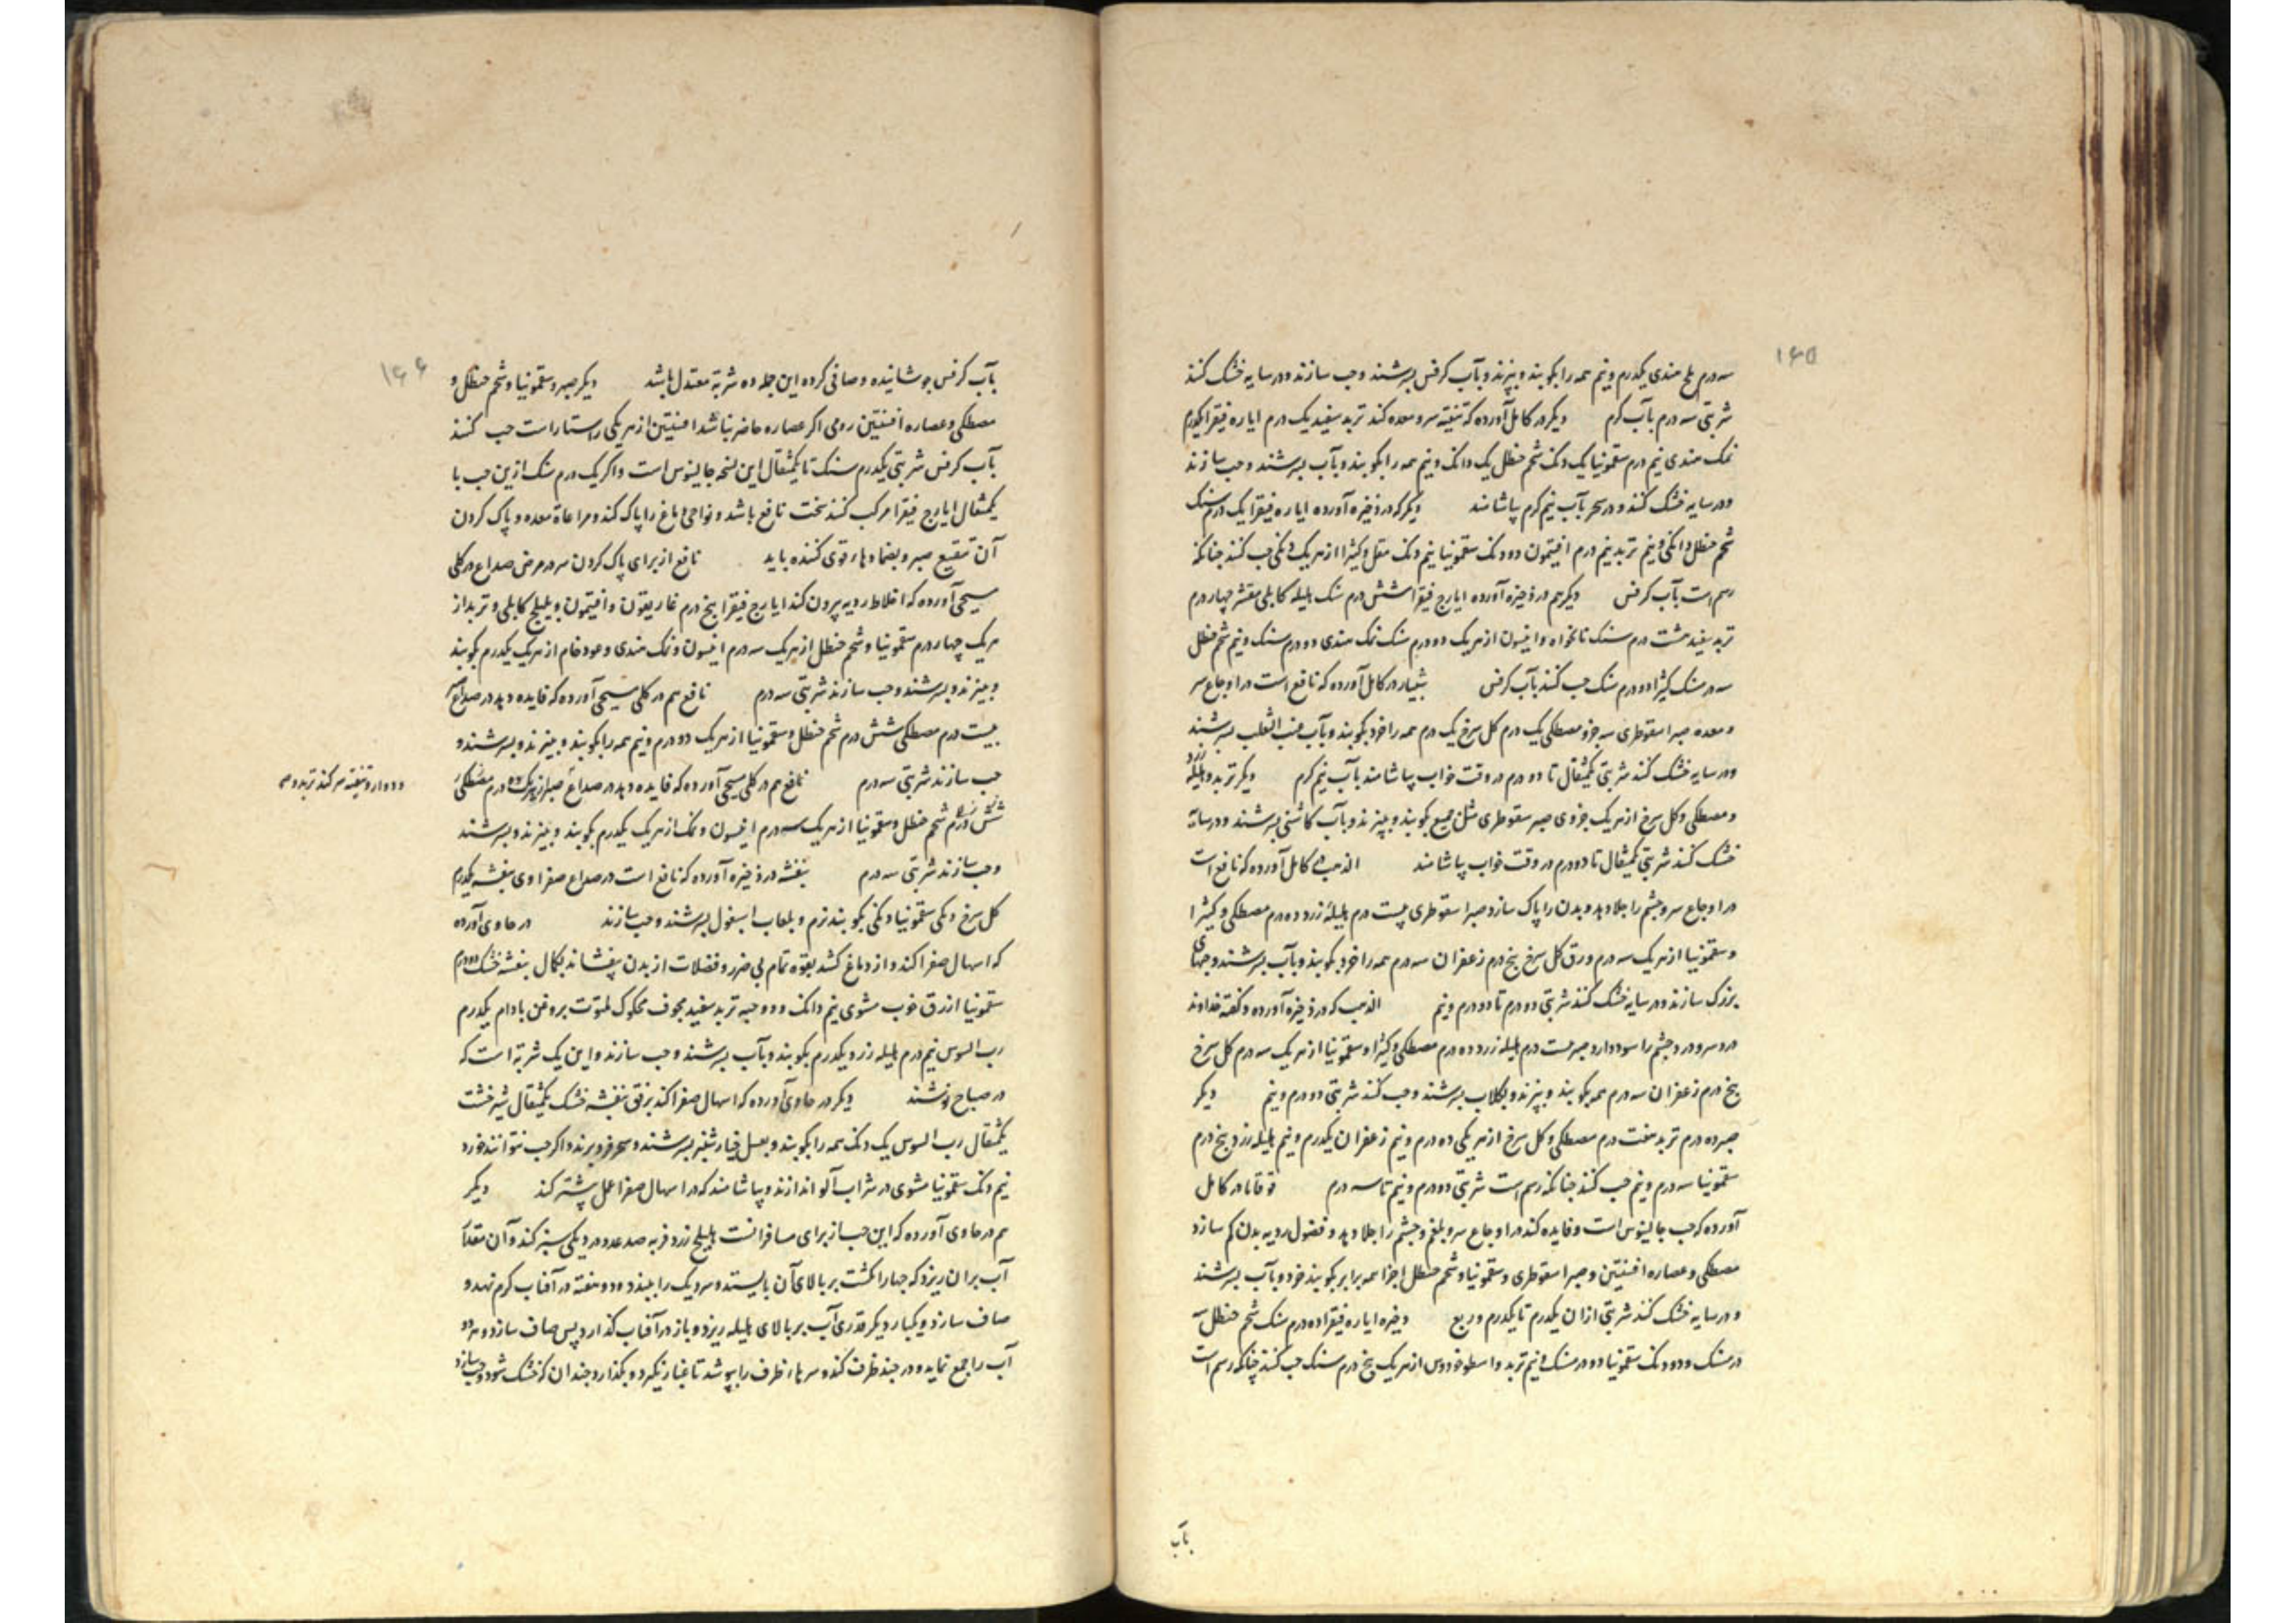 ۱۶۵
سه درم ملح هندی یکدرم و نیم همه را بکوبند و بپزند و بآب کرفس بسرشند و حب سازند و در سایه خشک کنند
شربتی سه درم بآب کرم دیکر در کامل آورده که تنقیه سر و معده کند تربد سفید یک درم ایاره فیقرا یکدرم
نمک هندی نیم درم سقمونیا یک دنک شحم حنظل یک دانک و نیم همه را بکوبند و بآب بسرشند و حب سازند
و در سایه خشک کنند و در سحر بآب نیم کرم بیاشامند دیکر که در ذخیره آورده ایاره فیقرا یک درم سنک
شحم حنظل دانکی و نیم تربد نیم درم افتیمون دو دنک سقمونیا نیم دنک مقل و کثیرا از هر یک دنکی حب کنند چنانکه
رسم است بآب کرفس دیکر هم در ذخیره آورده ایارج فیقرا شش درم سنک هلیله کابلی مقشر چهار درم
تربد سفید هشت درم سنک نانخواه و انیسون از هر یک دو درم سنک نمک هندی دو درم سنک و نیم شحم حنظل
سه درمسنک کثیرا دو درم سنک حب کنند بآب کرفس شبیار در کامل آورده که نافع است در اوجاع سر
و معده صبر اسقوطری سه جزو مصطکی یک درم کل سرخ یک درم همه را خرد بکوبند و بآب عنب الثعلب بسرشند
و در سایه خشک کنند شربتی یکمثقال تا دو درم در وقت خواب بیاشامند بآب نیم کرم دیکر تربد و هلیله زرد
و مصطکی و کل سرخ از هر یک جزوی صبر سقوطری مثل جمیع بکوبند و بپزند و بآب کاسنی بسرشند و در سایه
خشک کنند شربتی یکمثقال تا دو درم در وقت خواب بیاشامند الذهب فی کامل آورده که نافع است
در اوجاع سر و چشم را جلا دهد و بدن را پاک سازد صبر اسقوطری بیست درم هلیلهٔ زرد ده درم مصطکی و کثیرا
و سقمونیا از هر یک سه درم ورق کل سرخ پنج درم زعفران سه درم همه را خرد بکوبند و بآب بسرشند و حبهای
بزرک سازند و در سایه خشک کنند شربتی دو درم تا دو درم و نیم الذهب که در ذخیره آورده و کفته خداوند
درد سر و درد چشم را سود دارد صبر بیست درم هلیله زرد ده درم مصطکی و کثیرا و سقمونیا از هر یک سه درم کل سرخ
پنج درم زعفران سه درم همه بکوبند و بپزند و بکلاب بسرشند و حب کنند شربتی دو درم و نیم دیکر
صبر ده درم تربد هفت درم مصطکی و کل سرخ از هر یکی ده درم و نیم زعفران یکدرم و نیم هلیله زرد پنج درم
سقمونیا سه درم و نیم حب کنند چنانکه رسم است شربتی دو درم و نیم تا سه درم قوقایا در کامل
آورده که حب جالینوس است و فایده کند در اوجاع سر و بلغم و چشم را جلا دهد و فضول ردیه بدن کم سازد
مصطکی و عصاره افسنتین و صبر اسقوطری و سقمونیا و شحم حنظل اجزا همه برابر بکوبند خرد و بآب بسرشند
و در سایه خشک کنند شربتی از ان یکدرم تا یکدرم و ربع دیکر ذخیره ایاره فیقرا ده درم سنک شحم حنظل سه
درمسنک و دو دنک سقمونیا دو درمسنک و نیم تربد و اسطوخودوس از هر یک پنج درم سنک حب کنند چنانکه رسم است
بآب
۱۶۶
بآب کرفس جوشانیده و صافی کرده این جمله ده شربة معتدل باشد دیکر صبر و سقمونیا و شحم حنظل و
مصطکی و عصاره افسنتین رومی اکر عصاره حاضر نباشد افسنتین از هر یکی راستاراست حب کنند
بآب کرفس شربتی یکدرم سنک تا یکمثقال این نسخه جالینوس است و اکر یک درم سنک ازین حب با
یکمثقال ایارج فیقرا مرکب کنند سخت نافع باشد و نواحی دماغ را پاک کند و مراعاة معده و پاک کردن
آن بنقیع صبر و بضمادهاء قوی کننده باید نافع از برای پاک کردن سر در مرض صداع در کلی
مسیحی آورده که اخلاط ردیه بیرون کند ایارج فیقرا پنج درم غاریقون و افتیمون و هلیلج کابلی و تربد از
هر یک چهار درم سقمونیا و شحم حنظل از هر یک سه درم انیسون و نمک هندی و عود خام از هر یک یکدرم بکوبند
و بپزند و بسرشند و حب سازند شربتی سه درم نافع هم در کلی مسیحی آورده که فایده دهد در صداع صبر
بیست درم مصطکی شش درم شحم حنظل و سقمونیا از هر یک دو درم و نیم همه را بکوبند و بپزند و بسرشند و
حب سازند شربتی سه درم نافع هم در کلی مسیحی آورده که فایده دهد در صداع صبر از هر یک ده درم مصطکی
دوار و تنقیه سر کند تربد و
شش درم شحم حنظل و سقمونیا از هر یک سه درم انیسون و نمک از هر یک یکدرم بکوبند و بپزند و بسرشند
و حب سازند شربتی سه درم بنفشه در ذخیره آورده که نافع است در صداع صفراوی بنفشه یکدرم
کل سرخ دنکی سقمونیا دنکی بکوبند نرم و بلعاب اسبغول بسرشند و حب سازند در حاوی آورده
که اسهال صفرا کند و از دماغ کشد بقوه تمام بی ضرر و فضلات از بدن بیفشاند بکمال بنفشه خشک دو درم
سقمونیا ازرق خوب مشوی نیم دانک و دو حبه تربد سفید مجوف محکوک ملتوت بروغن بادام یکدرم
رب السوس نیم درم هلیله زرد یکدرم بکوبند و بآب بسرشند و حب سازند و این یک شربة است که
در صباح نوشند دیکر در حاوی آورده که اسهال صفرا کند برفق بنفشه خشک یکمثقال شیرخشت
یکمثقال رب السوس یک دنک همه را بکوبند و بعسل خیارشنبر بسرشند و سحر فرو برند و اکر حب نتوانند خورد
نیم دنک سقمونیا مشوی در شراب آلو اندازند و بیاشامند که در اسهال صفرا عمل بیشتر کند دیکر
هم در حاوی آورده که این حب از برای مسافرانست هلیلج زرد فربه صد عدد در دیکی سبز کند و آن مقدار
آب بر ان ریزد که چهار انکشت بر بالای آن بایستد و سر دیک را ببندد و دو هفته در آفتاب کرم نهد و
صاف سازد و یکبار دیکر قدری آب بر بالای هلیله ریزد و باز در آفتاب کذارد پس صاف سازد و هر دو
آب را جمع نماید و در چند ظرف کند و سرهاء ظرف را بپوشد تا غبار نکیرد و بکذارد چندان که خشک شود و حب سازد